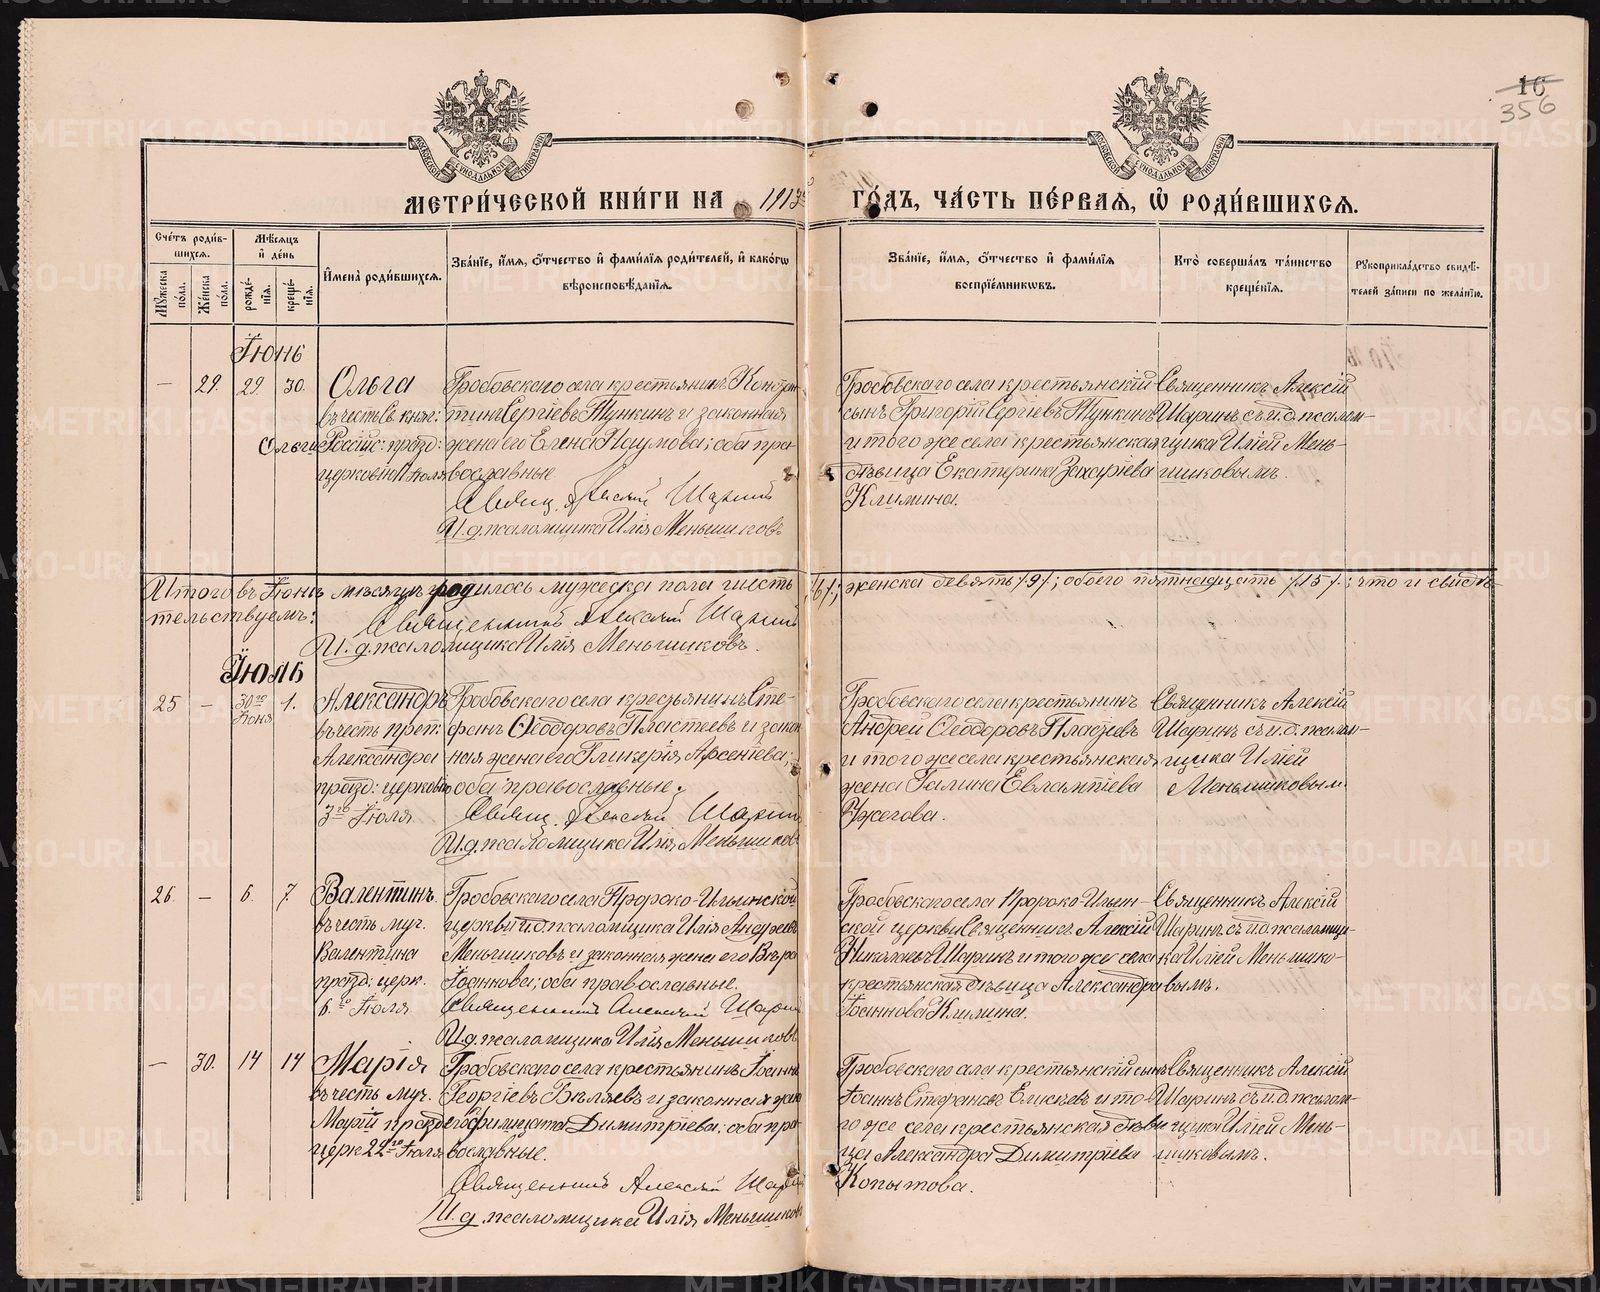 16
356
МЕТРИ́ЧЕСКОЙ КНИ́ГИ НА 1913й ГО́ДЪ, ЧА́СТЬ ПЕ́РВАЯ, Ѡ҆ РОДИ́ВШИХСЯ.
Сче́тъ роди́в-
шихся.
Мꙋ́жеска пола.
Же́нска пола.
Мѣ́сяцъ
и҆ де́нь
рожде́-
нїя.
креще́-
нїя.
И҆мена̀ роди́вшихся.
Зва́нїе, и҆́мя, ѻ҆́тчество и҆ фами́лїя роди́телей, и҆ како́гѡ
вѣроисповѣ́данїя.
Зва́нїе, и҆́мя, ѻ҆́тчество и҆ фами́лїя
воспрїе́мниковъ.
Кто̀ соверша́лъ та́инство
креще́нїя.
Рꙋкоприкла́дство свидѣ́-
телей за́писи по жела́нїю.
Іюнь
— 29. 29. 30.
Ольга
въ честь св. княг:
Ольги Россійс: празд:
церковію 11 Іюля
Гробовскаго села крестьянинъ Констан-
тинъ Сергіевъ Тункинъ и законная
жена его Елена Наумова; оба пра-
вославные
Священ. Алексій Шаринъ
И. д. псаломщика Илія Меньшиковъ
Гробовскаго села крестьянскій
сынъ Григорій Сергіевъ Тункинъ
и того же села крестьянская
дѣвица Екатерина Захаріева
Климина.
Священникъ Алексій
Шаринъ съ и. д. псалом-
щика Иліей Мень-
шиковымъ.
Итого въ Іюнѣ мѣсяцѣ родилось мужеска пола шесть /6/; женска девять /9/; обоего пятнадцать /15/; что и свидѣ-
тельствуемъ:
Священникъ Алексій Шаринъ
И. д. псаломщика Илія Меньшиковъ.
Іюль
25 — 30го Іюня 1.
Александръ
въ честь преп:
Александра
празд: церковію
3го Іюля
Гробовскаго села крестьянинъ Сте-
фанъ Ѳеодоровъ Пластеевъ и закон
ная жена его Гликерія Арсеніева;
оба православные.
Священ. Алексій Шаринъ
И. д. псаломщика Илія Меньшиковъ
Гробовскаго села крестьянинъ
Андрей Ѳеодоровъ Пластеевъ
и того же села крестьянская
жена Галина Евлампіева
Ужегова.
Священникъ Алексій
Шаринъ съ и. д. псалом-
щика Иліей
Меньшиковым.
26. — 6. 7
Валентинъ
въ честь муч.
Валентина
празд: церк.
6го Іюля
Гробовскаго села Пророко-Ильинской
церкви и. д. псаломщика Илія Андреевъ
Меньшиковъ и законная жена его Вѣра
Іоаннова; оба православные.
Священникъ Алексій Шаринъ
И. д. псаломщика Илія Меньшиковъ
Гробовскаго села Пророко-Ильин-
ской церкви Священникъ Алексій
Николаевъ Шаринъ и того же села
крестьянская дѣвица Александра
Іоаннова Климина.
Священникъ Алексій
Шаринъ съ и. д. псаломщи-
ка Иліей Меньшико-
вымъ.
— 30. 14 14
Марія
въ честь муч.
Маріи празд
церк 22го Іюля
Гробовскаго села крестьянинъ Іоаннъ
Георгіевъ Бѣляевъ и законная жена
его Филицата Димитріева; оба пра-
вославные.
Священникъ Алексій Шаринъ
И. д. псаломщика Илія Меньшиковъ
Гробовскаго села крестьянскій сынъ
Іоаннъ Стефановъ Елисѣевъ и то-
го же села крестьянская дѣви
ца Александра Димитріева
Копытова.
Священникъ Алексій
Шаринъ съ и. д. псалом-
щика Иліей Мень-
шиковымъ.